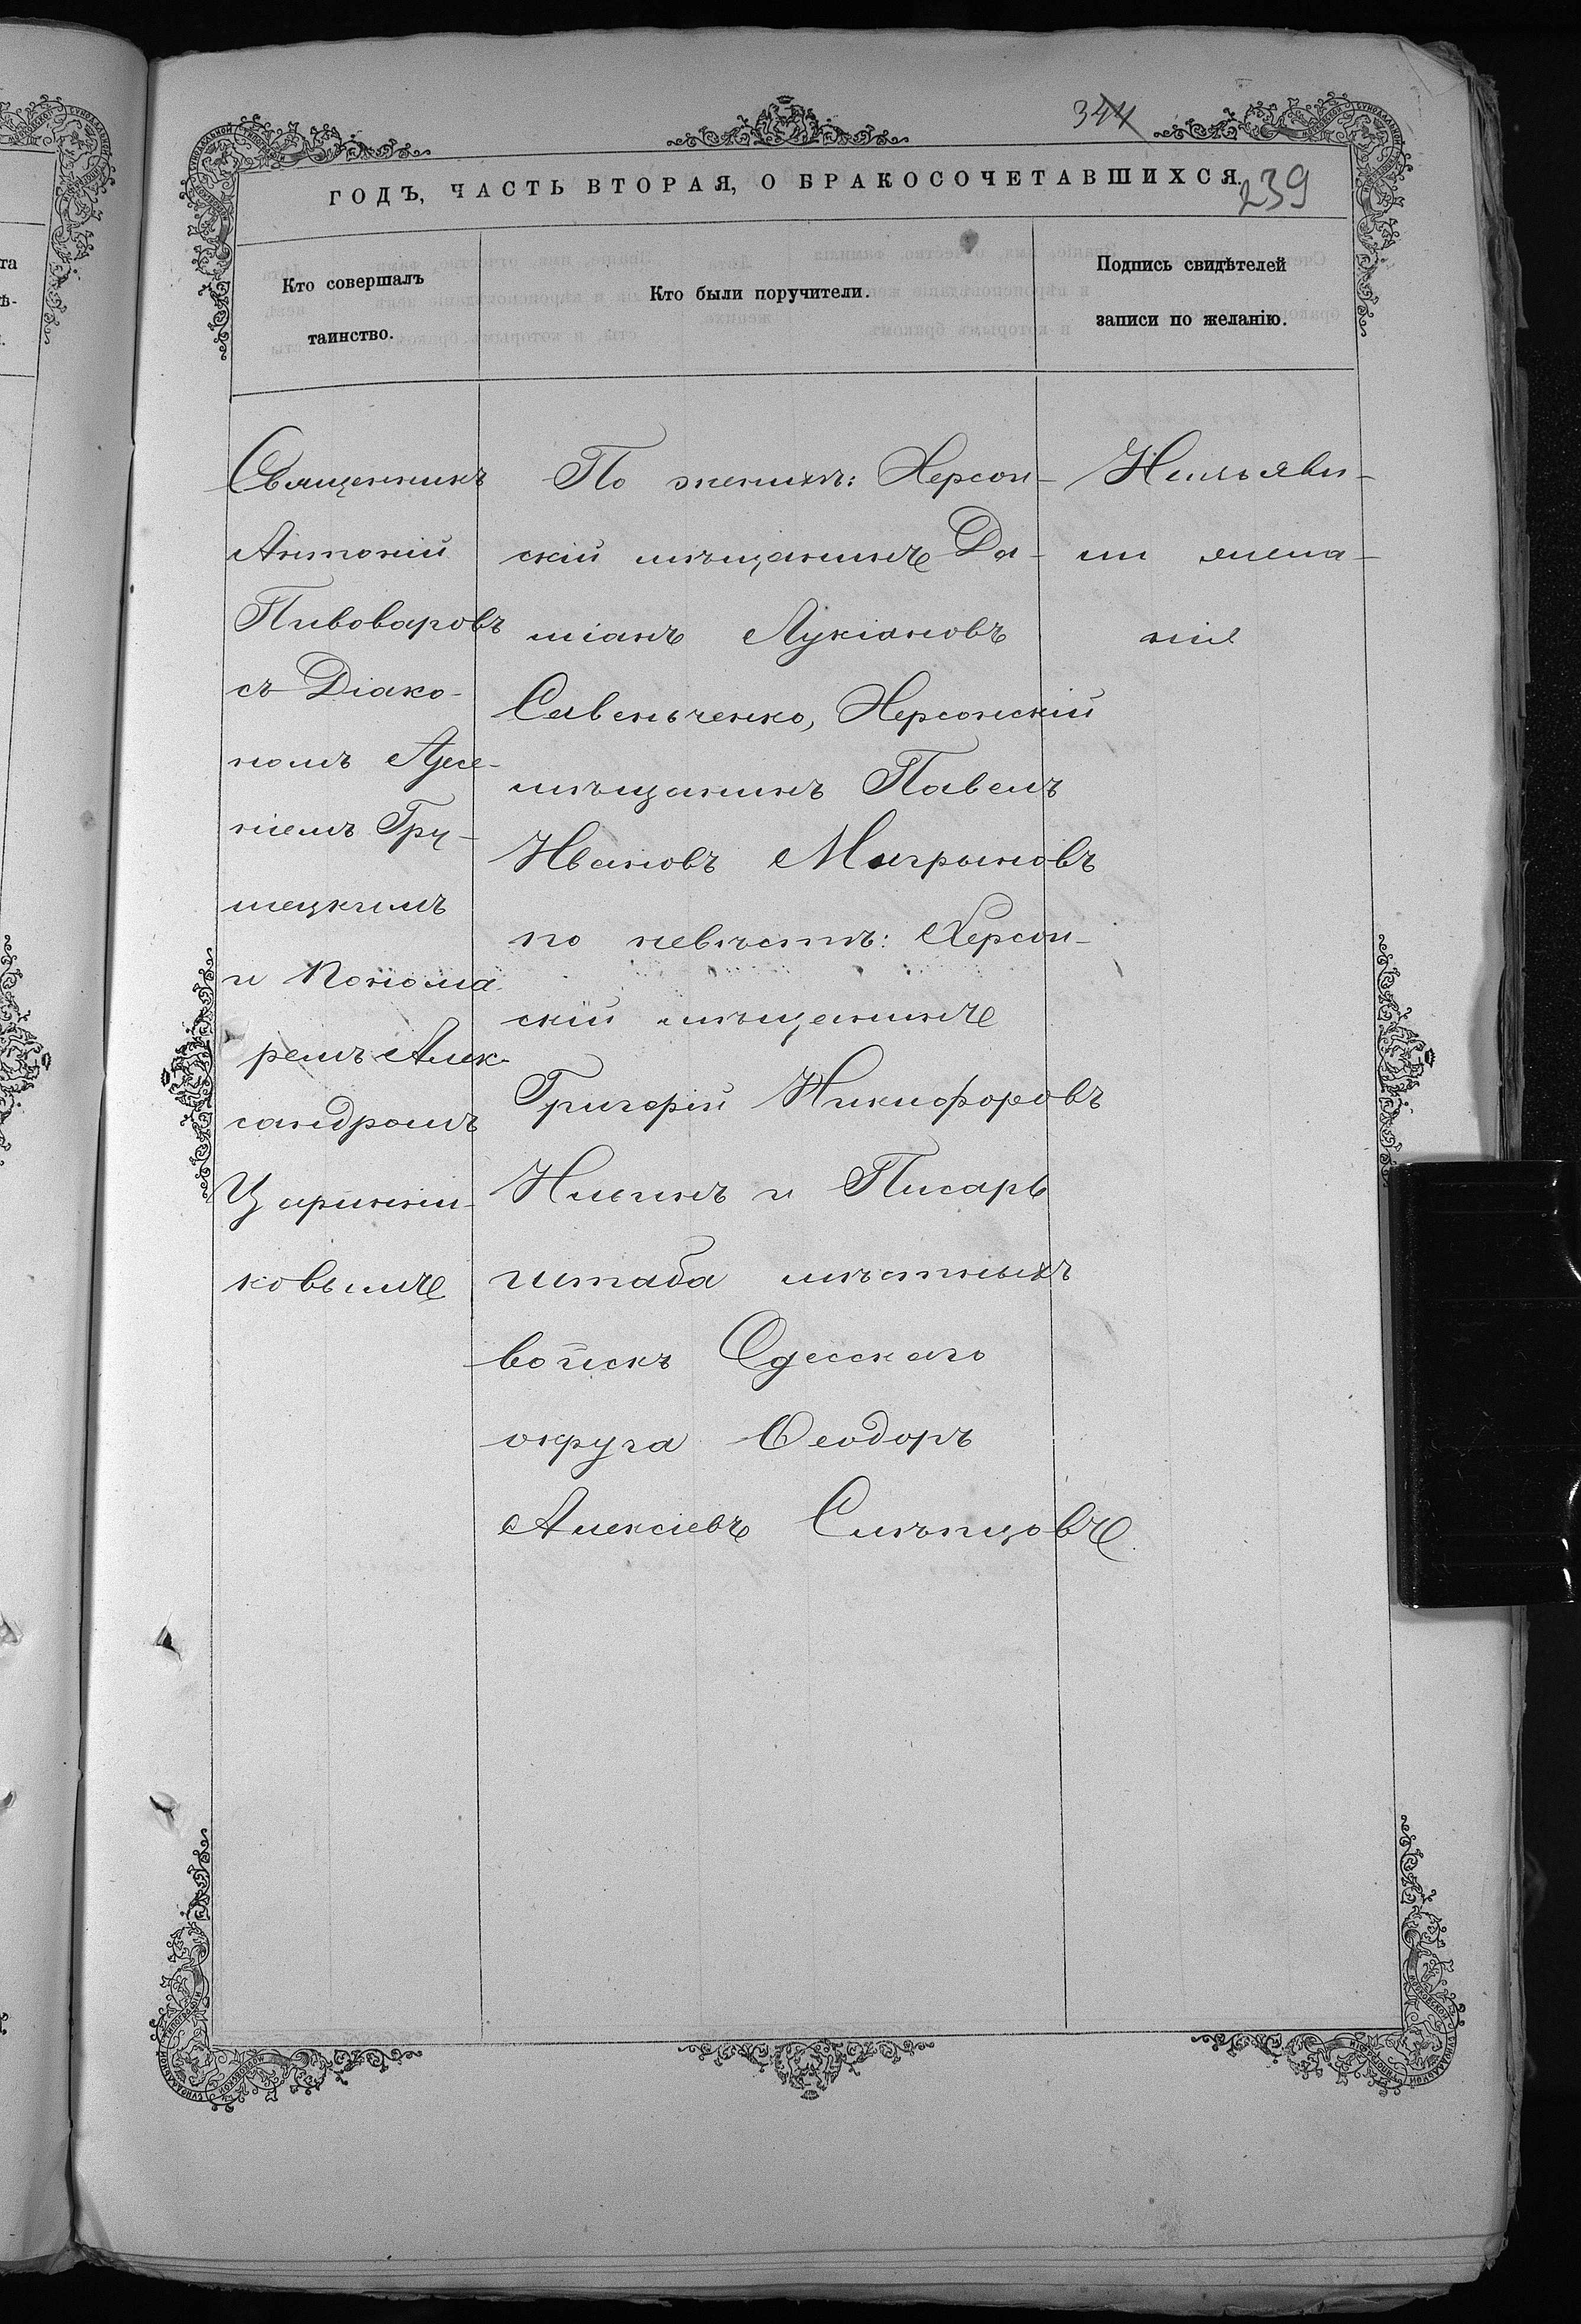 344
ГОДЪ, ЧАСТЬ ВТОРАЯ, О БРАКОСОЧЕТАВШИХСЯ.
239
Кто совершалъ
таинство.
Кто были поручители.
Подпись свидѣтелей
записи по желанію.
Священникъ
Антоній
Пивоваровъ
съ Діако-
номъ Арсе-
ніемъ Гру-
шецкимъ
и Понома
ремъ Алек-
сандромъ
ковымъ
По женихѣ: Херсон-
скій мѣщанинъ Да-
міанъ Лукіановъ
Савельченко, Херсонскій
мѣщанинъ Павелъ
Ивановъ
по невѣстѣ: Херсон-
скій мѣщанинъ
Григорій Никифоровъ
и Писарь
штаба мѣстныхъ
войскъ Одесскаго
округа Ѳеодоръ
Алексіевъ Слѣпцовъ.
Неизъяви-
ли жела-
нія